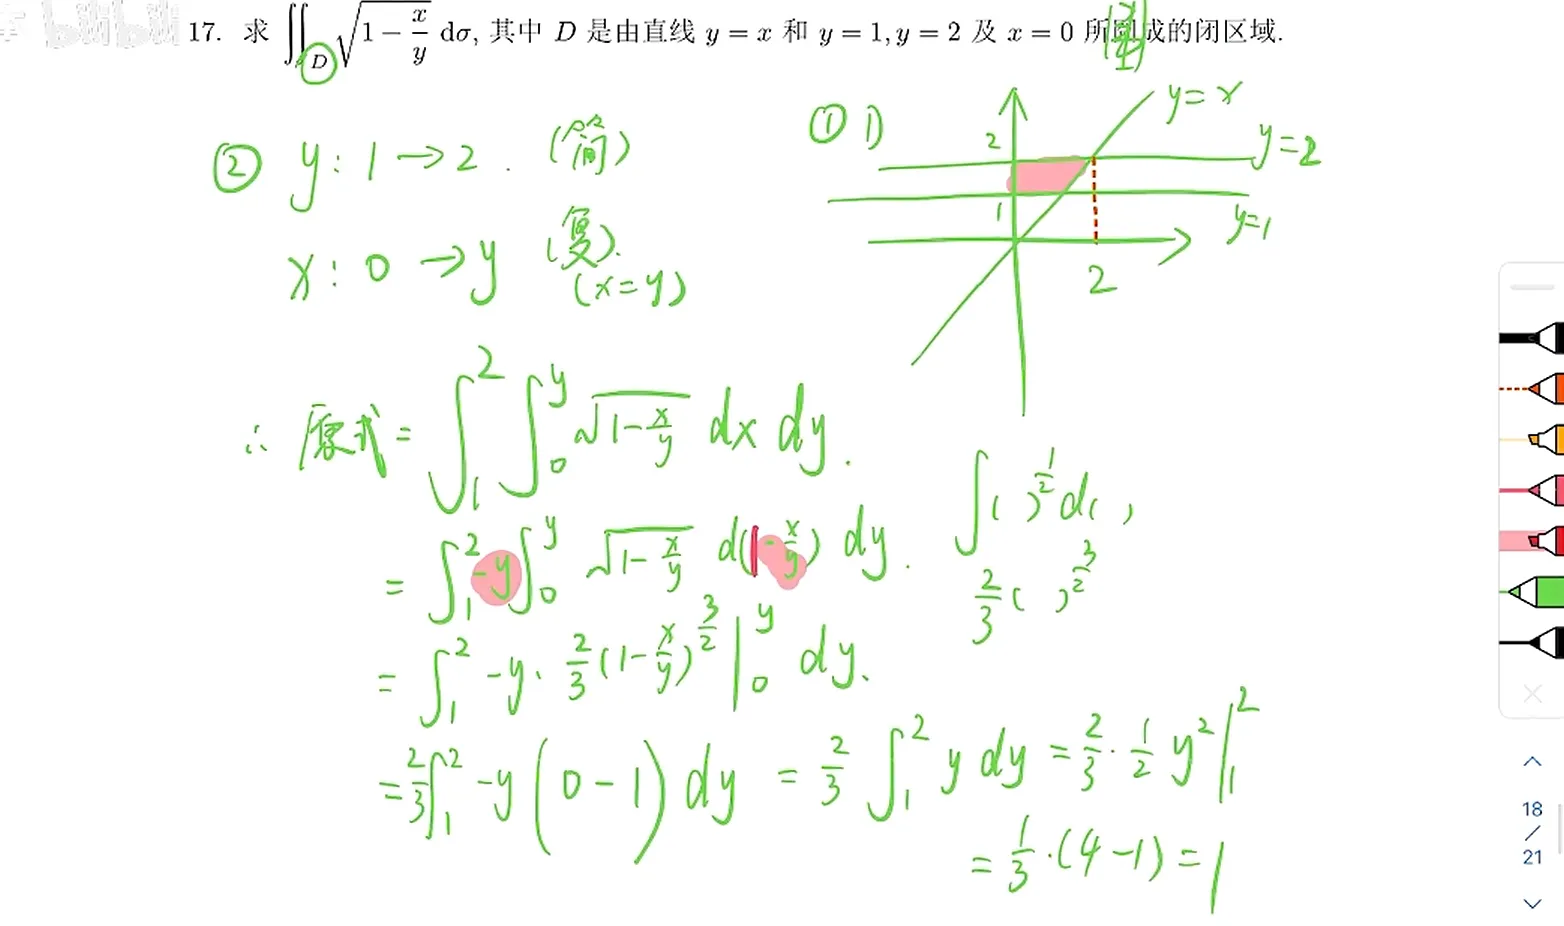 bilibili
17. 求 ∬_D √(1 − x/y) dσ, 其中 D 是由直线 y = x 和 y = 1, y = 2 及 x = 0 所围成的闭区域.
① D
y = x
y = 2
y = 1
2
1
2
② y : 1 → 2 . (简)
x : 0 → y (复).
(x = y)
∴ 原式 = ∫_1^2 ∫_0^y √(1 − x/y) dx dy .
= ∫_1^2 −y ∫_0^y √(1 − x/y) d(1 − x/y) dy .
∫ ( )^{1/2} d( )
2/3 ( )^{3/2}
= ∫_1^2 −y · 2/3 (1 − x/y)^{3/2} |_0^y dy .
= 2/3 ∫_1^2 −y (0 − 1) dy = 2/3 ∫_1^2 y dy = 2/3 · 1/2 y^2 |_1^2
= 1/3 · (4 − 1) = 1
18
/
21